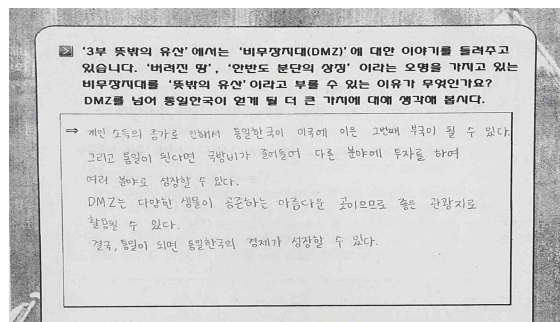 '3부 뜻밖의 유산'에서는 '비무장지대(DMZ)'에 대한 이야기를 들려주고
있습니다. '버려진 땅', '한반도 분단의 상징' 이라는 오명을 가지고 있는
비무장지대를 '뜻밖의 유산'이라고 부를 수 있는 이유가 무엇인가요?
DMZ를 넘어 통일한국이 얻게 될 더 큰 가치에 대해 생각해 봅시다.
⇒ 개인 소득의 증가로 인해서 통일한국이 미국에 이은 2번째 부국이 될 수 있다.
그리고 통일이 된다면 국방비가 줄어들어 다른 분야에 투자를 하여
여러 분야로 성장할 수 있다.
DMZ는 다양한 생물이 공존하는 아름다운 곳이므로 좋은 관광지로
활용될 수 있다.
결국, 통일이 되면 통일한국의 경제가 성장할 수 있다.